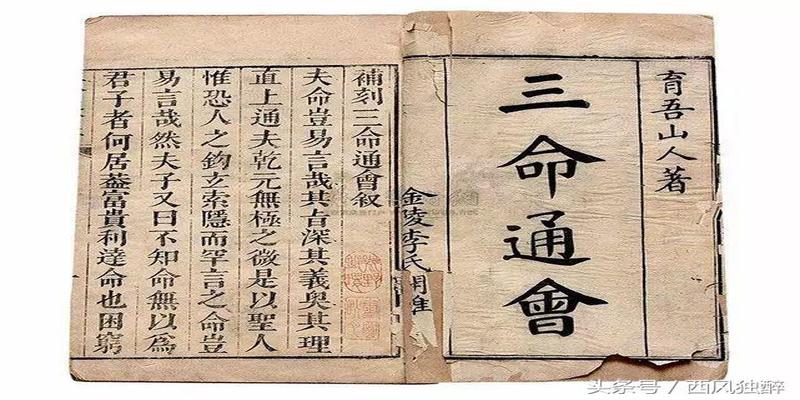 育吾山人著
三命通會
金陵李氏
補刻三命通會叙
夫命豈易言哉其㫖深其義奥其理
直上通夫乾元無極之微是以聖人
惟恐人之鈎玄索隠而罕言之命豈
易言哉然夫子又曰不知命無以爲
君子者何居葢富貴利達命也困窮
头条号/西风独醉